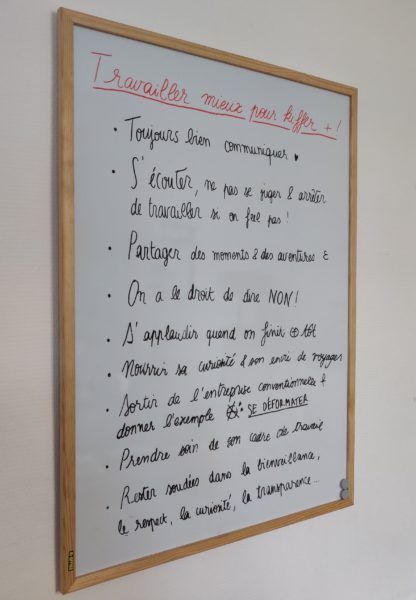 Travailler mieux pour kiffer + !
• Toujours bien communiquer ♥
• S'écouter, ne pas se juger & arrêter
de travailler si on feel pas !
• Partager des moments & des aventures
• On a le droit de dire NON!
• S'applaudir quand on finit + tôt
• Nourrir sa curiosité & son envi de voyages
• Sortir de l'entreprise conventionnelle &
donner l'exemple : SE DÉFORMATER
• Prendre soin de son cadre de travail
• Rester soudées dans la bienveillance,
le respect, la curiosité, la transparence...